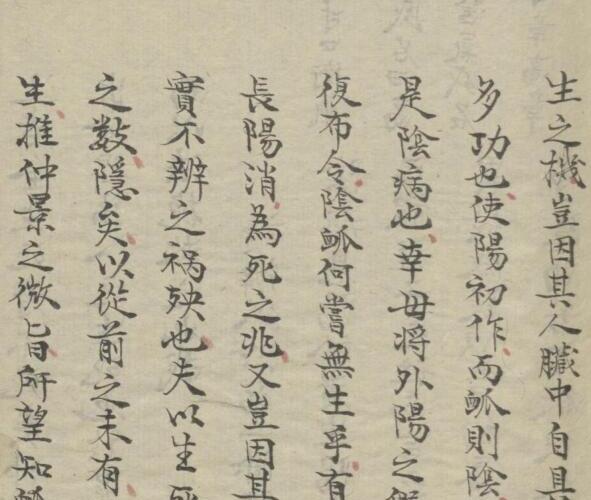 生之機豈因其人臟中自具
多功也使陽初作而衇則陰
是陰病也幸毋将外陽之
復布令陰衇何嘗無生乎有
長陽消為死之兆又豈因其
實不辨之禍殃也夫以生死
之数隱矣以從前之未有
生推仲景之微旨所望知衇